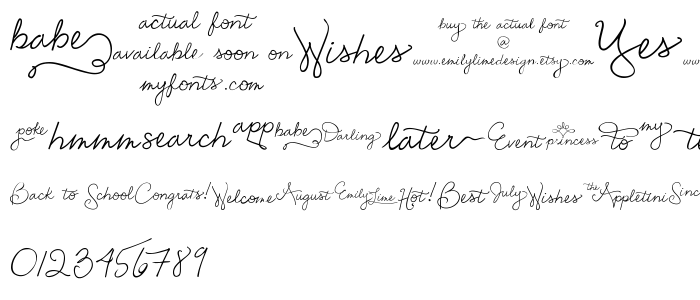 babe actual font available soon on myfonts.com Wishes buy the actual font @ www.emilylimedesign.etsy.com Yes
poke hmmm search app babe Darling later Event princess to my
Back to School Congrats! Welcome August Emily Lime Hot! Best July Wishes the Appletini Sinc
0123456789